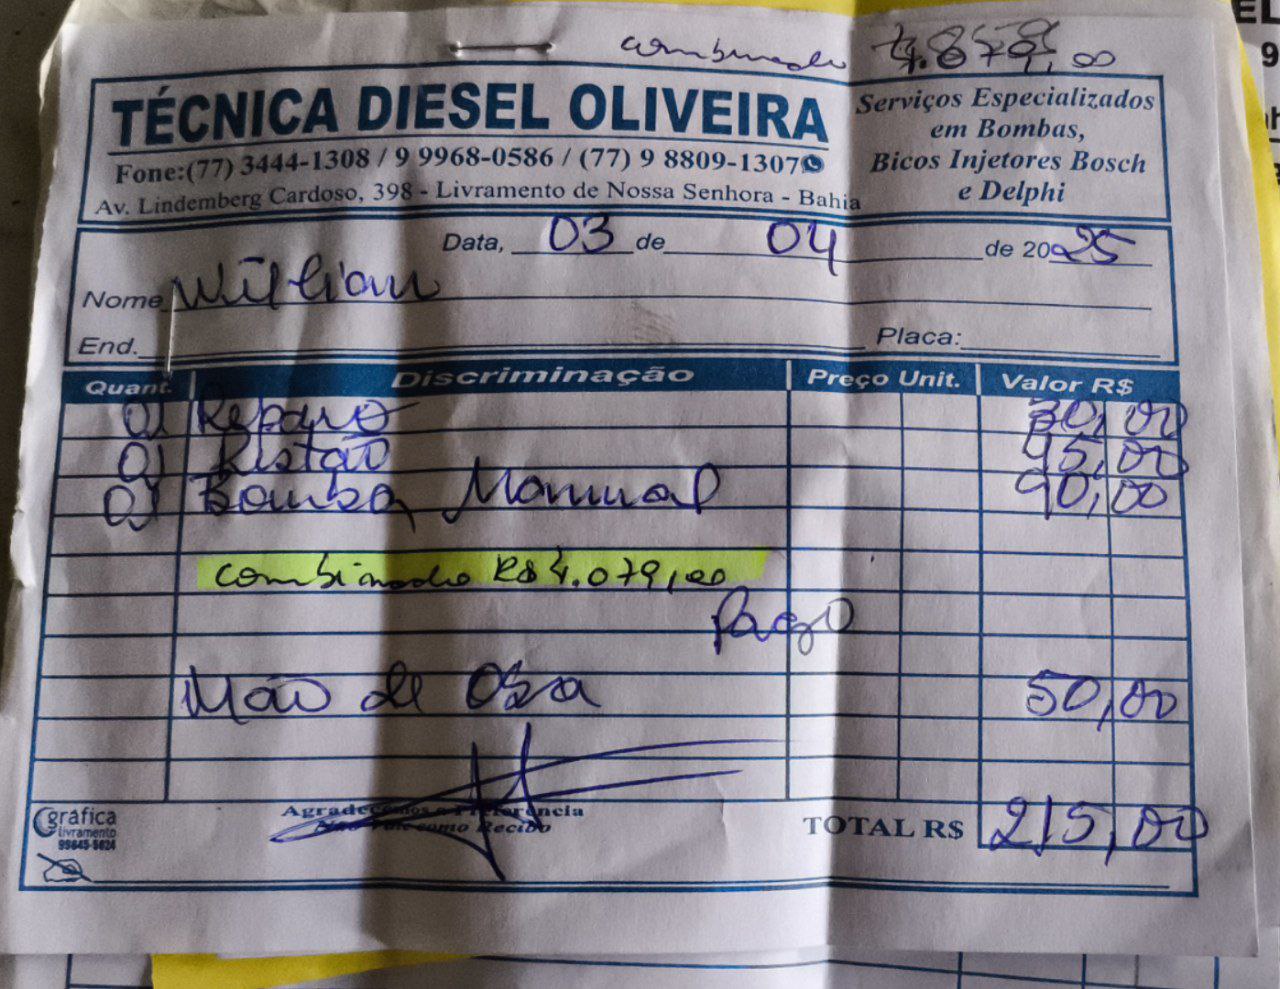 combinado
TÉCNICA DIESEL OLIVEIRA
Fone:(77) 3444-1308 / 9 9968-0586 / (77) 9 8809-1307
Av. Lindemberg Cardoso, 398 - Livramento de Nossa Senhora - Bahia
Serviços Especializados
em Bombas,
Bicos Injetores Bosch
e Delphi
Data, 03 de 04 de 2025
Nome Willian
End. Placa:
Quant. Discriminação Preço Unit. Valor R$
01 Reparo 30,00
01 Pistão 45,00
01 Bomba Manual 90,00
combinado R$ 4.079,00
Pago
Mão de Obra 50,00
Agradecemos a Preferência
Não Vale como Recibo
gráfica
Livramento
TOTAL R$ 215,00
EL
9